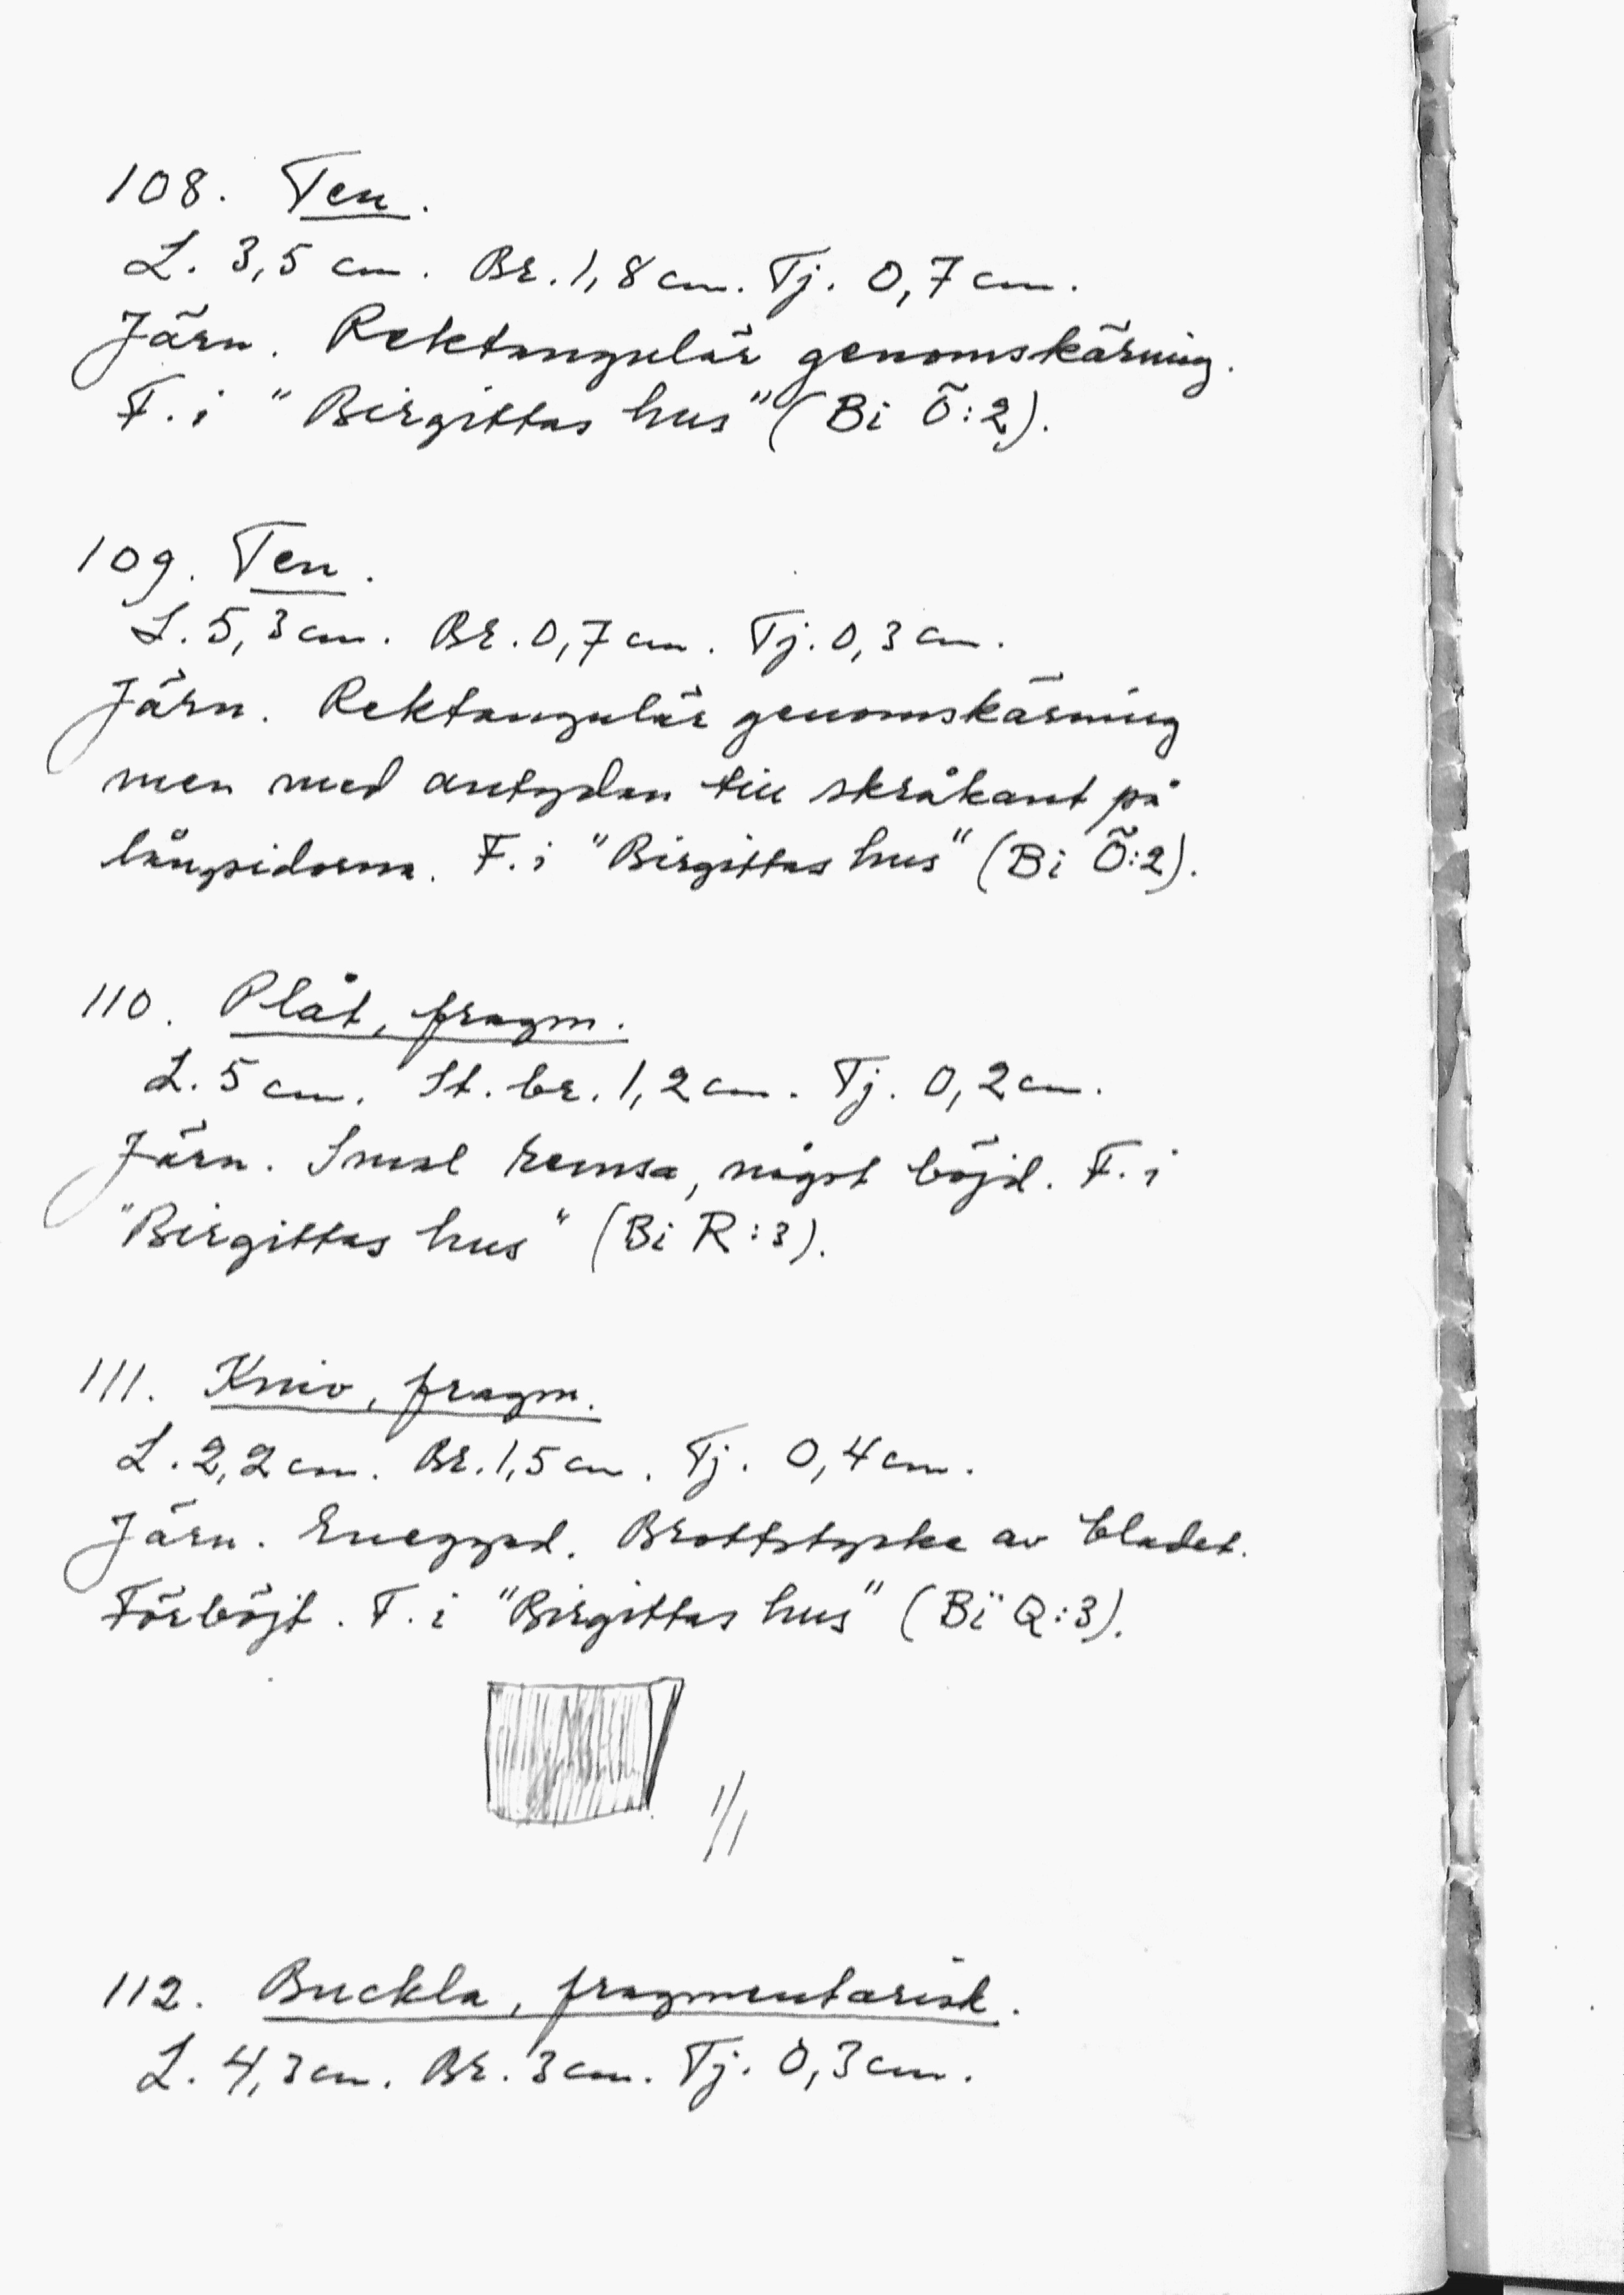 108. Ten.
L. 3,5 cm. Br. 1,8 cm. Tj. 0,7 cm.
Järn. Rektangulär genomskärning.
F. i "Birgittas hus" (Bi Ö:2).
109. Ten.
L. 5,3 cm. Br. 0,7 cm. Tj. 0,3 cm.
Järn. Rektangulär genomskärning
men med antydan till skråkant på
långsidorna. F. i "Birgittas hus" (Bi Ö:2).
110. Plåt, fragm.
L. 5 cm. St. br. 1,2 cm. Tj. 0,2 cm.
Järn. Smal remsa, något böjd. F. i
"Birgittas hus" (Bi R:3).
111. Kniv, fragm.
L. 2,2 cm. Br. 1,5 cm. Tj. 0,4 cm.
Järn. Eneggad. Brottstycke av bladet.
Förböjt. F. i "Birgittas hus" (Bi Q:3).
1/1
112. Buckla, fragmentarisk.
L. 4,3 cm. Br. 3 cm. Tj. 0,3 cm.